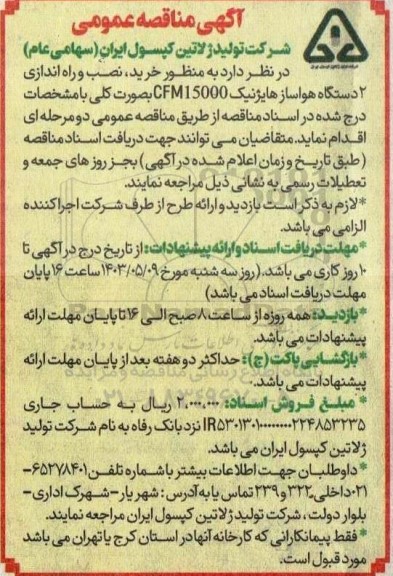 آگهی مناقصه عمومی
شرکت تولید ژلاتین کپسول ایران (سهامی عام)
در نظر دارد به منظور خرید، نصب و راه اندازی
۲ دستگاه هواساز هایژنیک CFM15000 بصورت کلی با مشخصات
درج شده در اسناد مناقصه از طریق مناقصه عمومی دو مرحله ای
اقدام نماید. متقاضیان می توانند جهت دریافت اسناد مناقصه
(طبق تاریخ و زمان اعلام شده در آگهی) بجز روز های جمعه و
تعطیلات رسمی به نشانی ذیل مراجعه نمایند.
*لازم به ذکر است بازدید و ارائه طرح از طرف شرکت اجرا کننده
الزامی می باشد.
*مهلت دریافت اسناد و ارائه پیشنهادات: از تاریخ درج در آگهی تا
۱۰ روز کاری می باشد. (روز سه شنبه مورخ ۱۴۰۳/۰۵/۰۹ ساعت ۱۶ پایان
مهلت دریافت اسناد می باشد)
*بازدید: همه روزه از ساعت ۸ صبح الی ۱۶ تا پایان مهلت ارائه
پیشنهادات می باشد.
*بازگشایی پاکت (ج): حداکثر دو هفته بعد از پایان مهلت ارائه
پیشنهادات می باشد.
* مبلغ فروش اسناد: ۲,۰۰۰,۰۰۰ ریال به حساب جاری
IR۵۳۰۱۳۰۱۰۰۰۰۰۰۰۰۲۲۴۸۵۳۲۳۵ نزد بانک رفاه به نام شرکت تولید
ژلاتین کپسول ایران می باشد.
* داوطلبان جهت اطلاعات بیشتر با شماره تلفن ۶۵۲۷۸۴۰۱-
۰۲۱ داخلی ۳۲۲ و ۲۳۹ تماس یا به آدرس : شهریار - شهرک اداری -
بلوار دولت ، شرکت تولید ژلاتین کپسول ایران مراجعه نمایند.
* فقط پیمانکارانی که کارخانه آنها در استان کرج یا تهران می باشد
مورد قبول است.